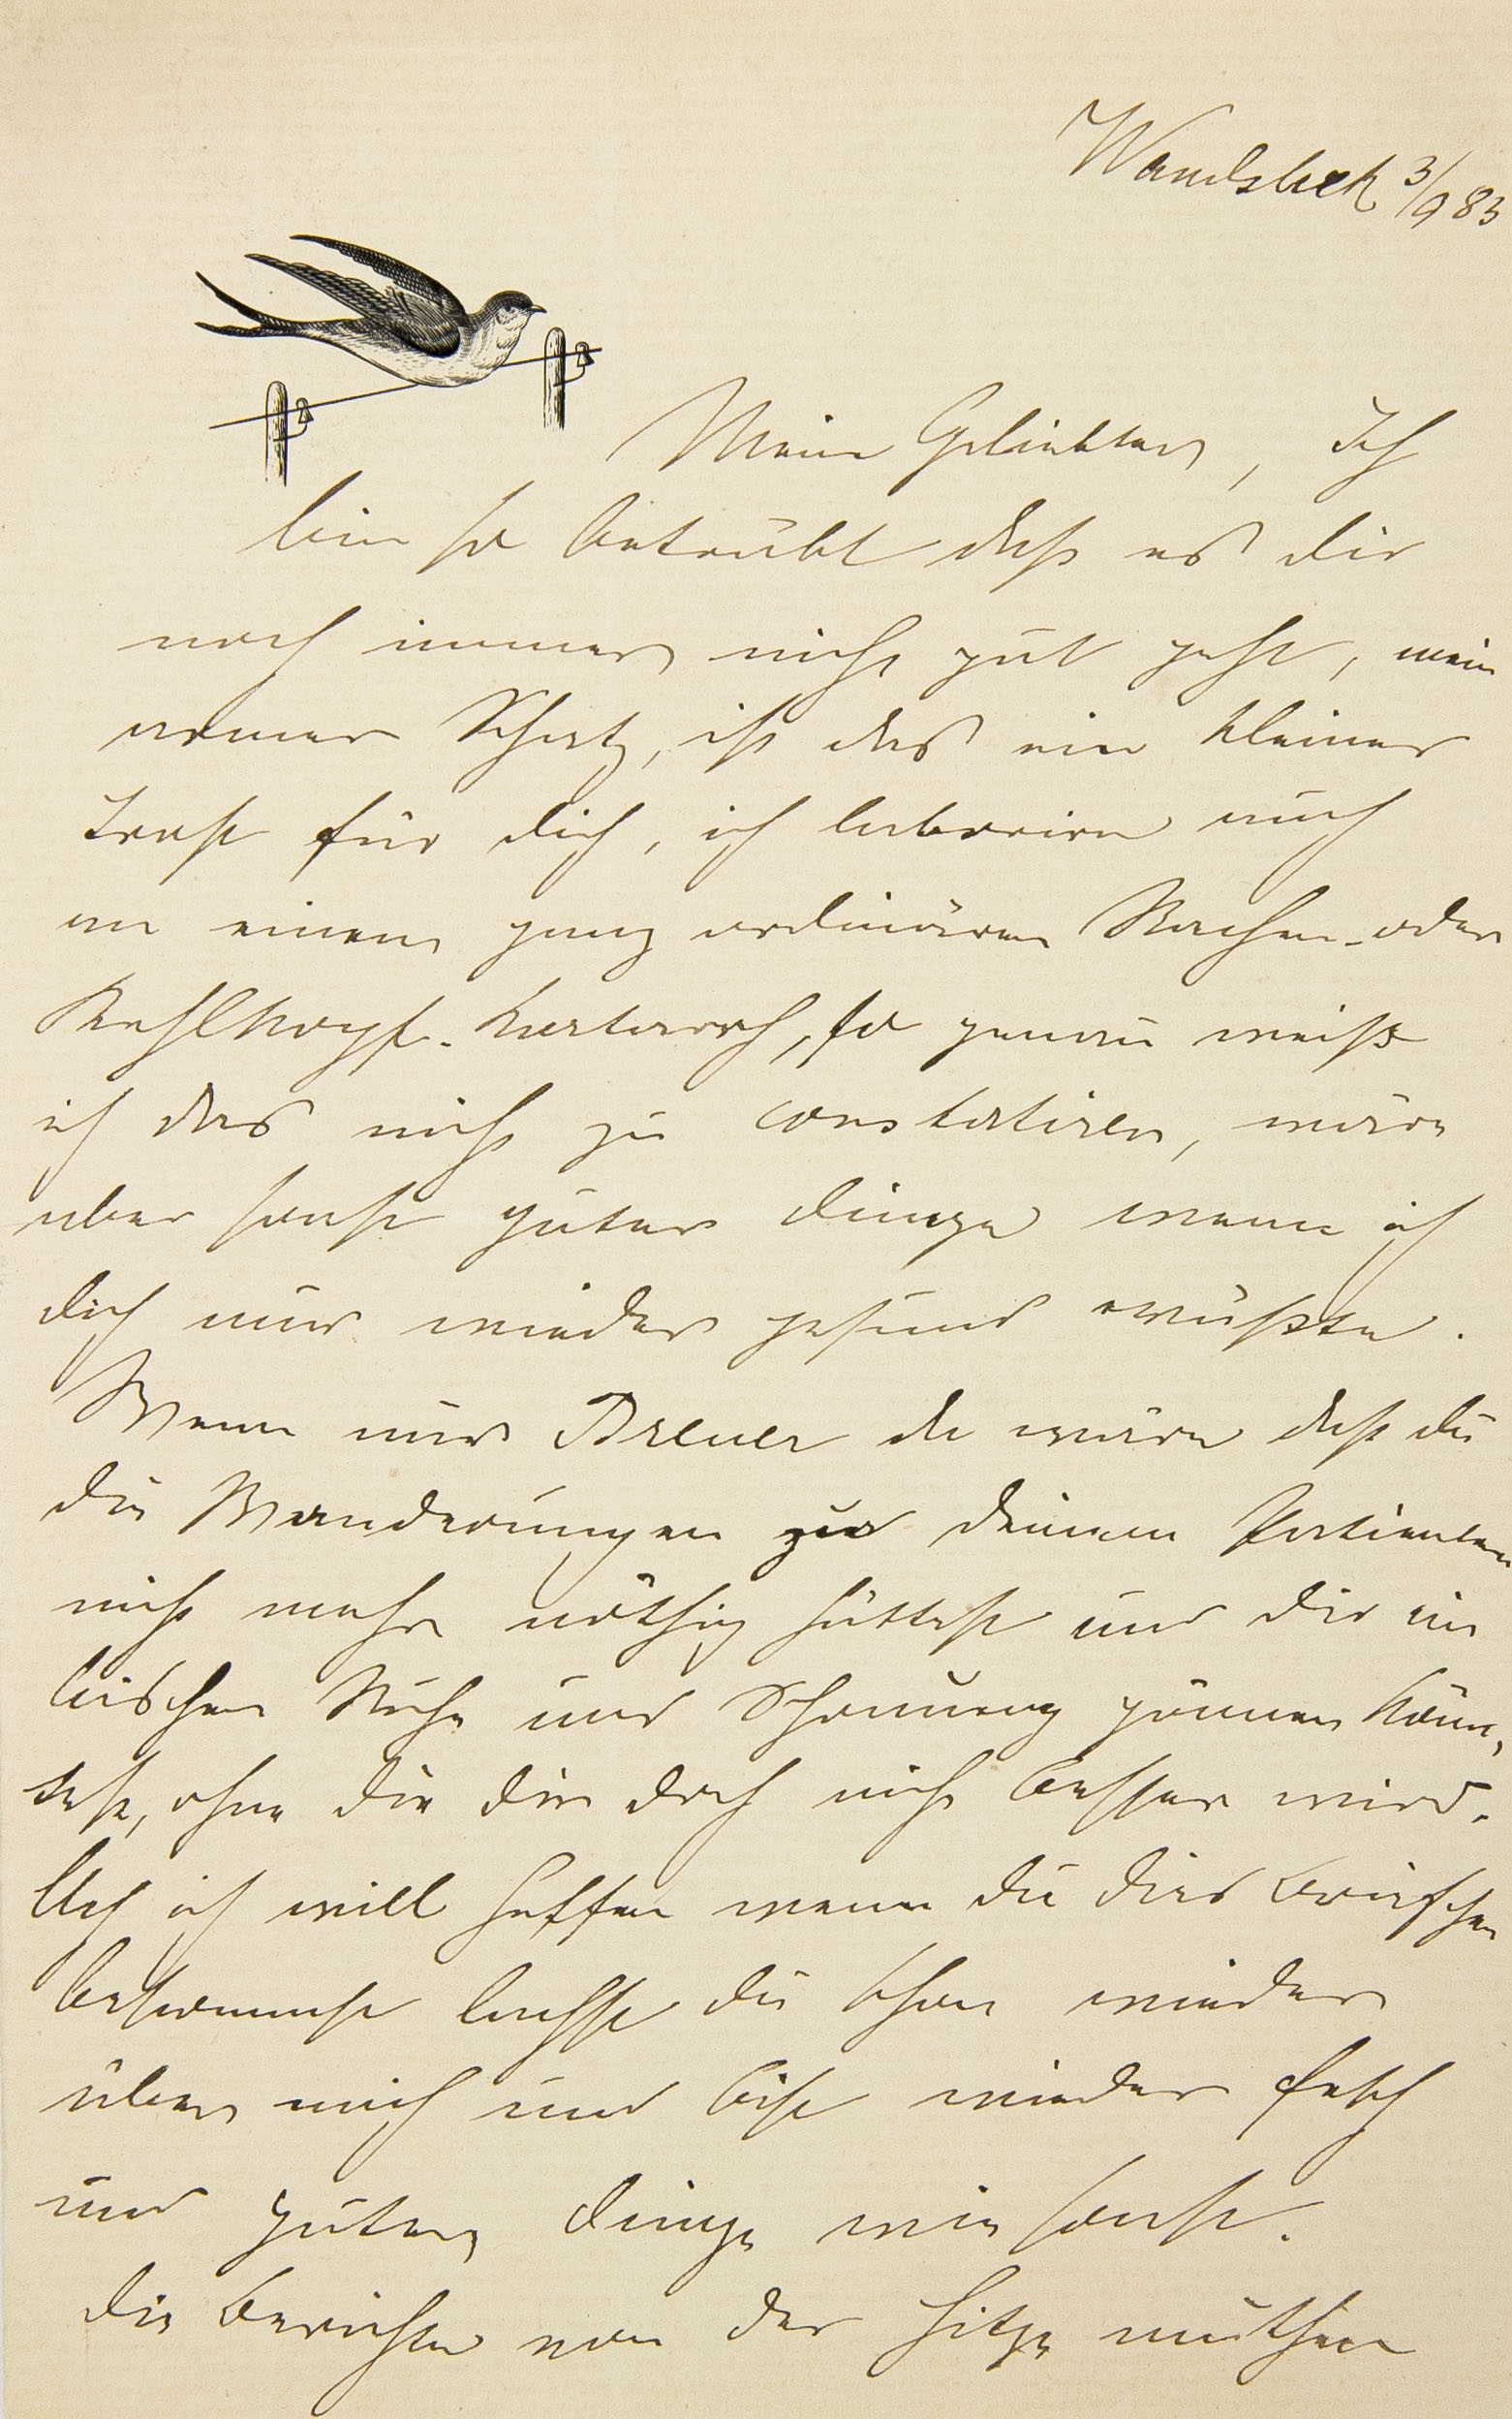 Wandsbek 3/9 83
Mein Geliebter, Ich
bin so betrübt daß es dir
noch immer nicht gut geht, mein
armer Schatz, ist das ein kleiner
Trost für dich, ich laborire auch
an einem ganz ordinären Rachen- oder
Kehlkopf-Kartarrh, so genau weiß
ich das nicht zu constatiren, wäre
aber sonst guter Dinge wenn ich
dich nur wieder gesund wüßte.
Wenn nur Breuer da wäre daß du
die Wanderungen zu deinem Patienten
nicht mehr nöthig hättest und dir ein
bischen Ruhe und Schonung gönnen könn,
test, ohne die dir doch nicht besser wird.
Ach ich will hoffen wenn du dies Briefchen
bekommst lachst du schon wieder
über mich und bist wieder fesch
und guter Dinge wie sonst.
Die Berichte von der Hitze muthen